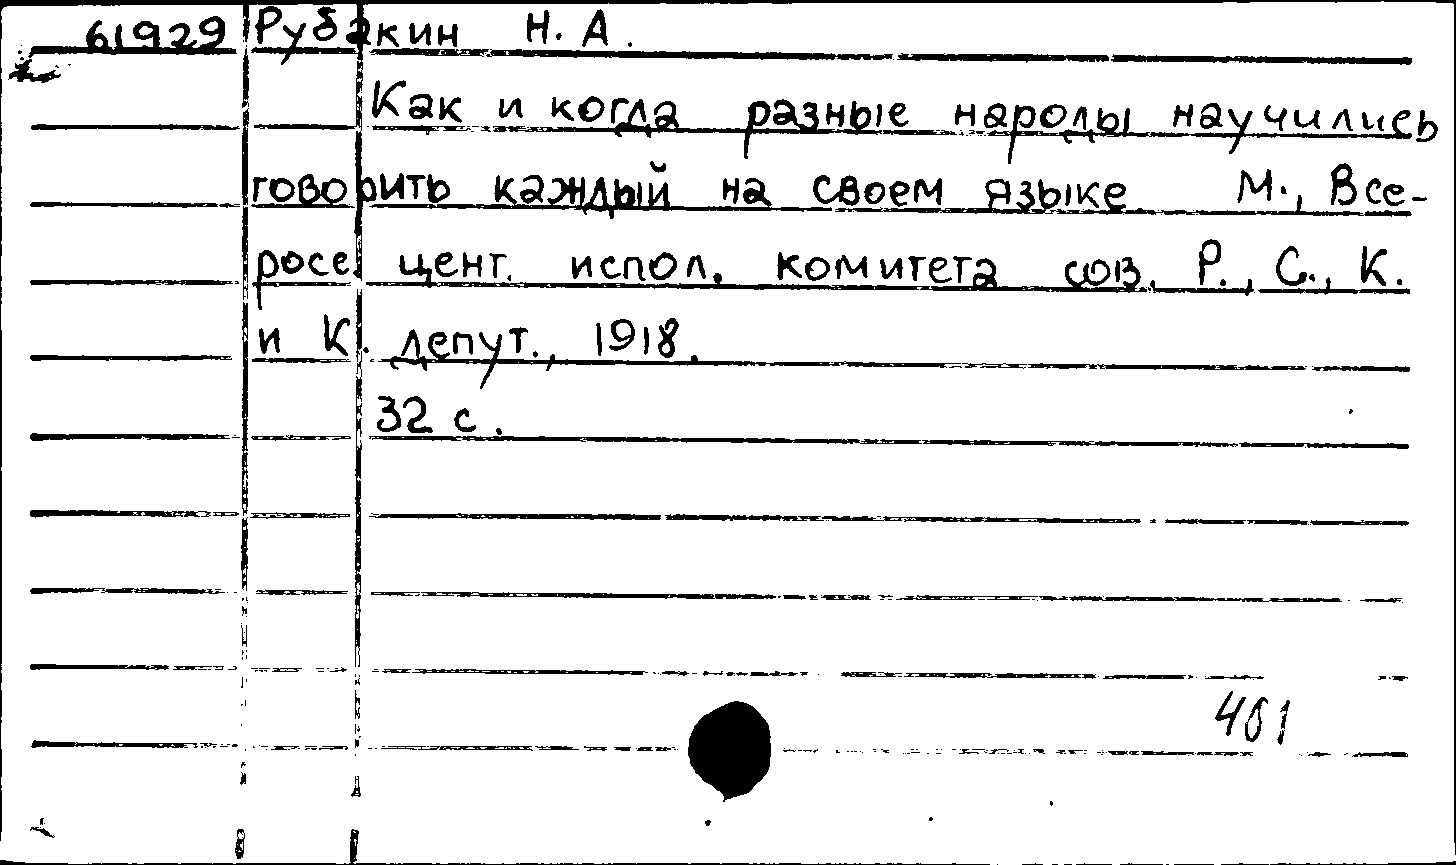 61929 Рубакин Н. А.
Как и когда разные народы научились
говорить каждый на своем языке М., Все-
росс. цент. испол. комитета сов. Р., С., К.
и К. депут., 1918.
32 с.
401